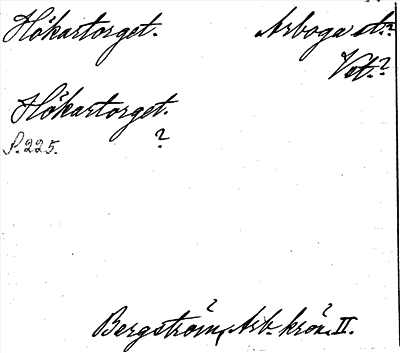 Hökartorget. Arboga st.?
Vst.?
Hökartorget.
S. 225. ?
Bergström, Arb. krön. II.